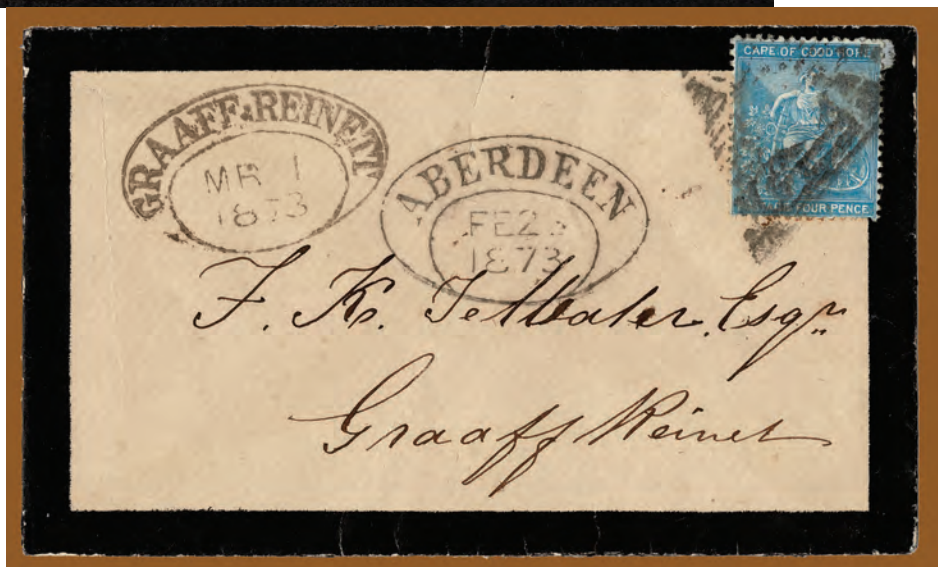 CAPE OF GOOD HOPE
FOUR PENCE
GRAAFF-REINETT
MR 1
1873
ABERDEEN
FE2
1873
F. K. Esqr.
Graaff Reinet